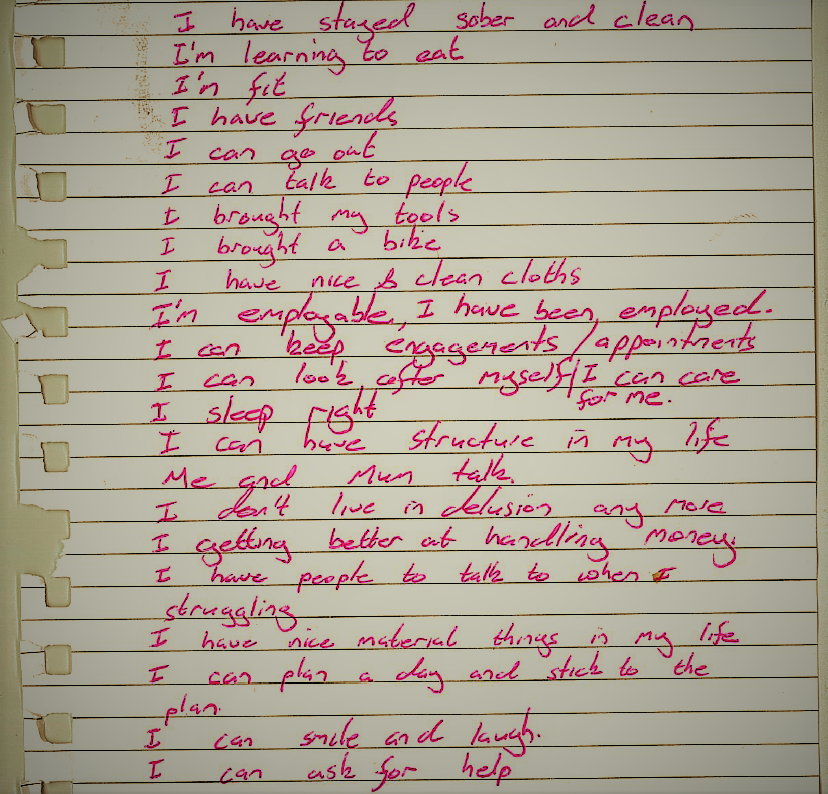 I have stayed sober and clean
I'm learning to eat
I'm fit
I have friends
I can go out
I can talk to people
I brought my tools
I brought a bike
I have nice & clean cloths
I'm employable, I have been employed.
I can keep engagements / appointments
I can look after myself / I can care
for me.
I sleep right
I can have structure in my life
Me and Mum talk.
I don't live in delusion any more
I getting better at handling money.
I have people to talk to when I
struggling
I have nice material things in my life
I can plan a day and stick to the
plan.
I can smile and laugh.
I can ask for help